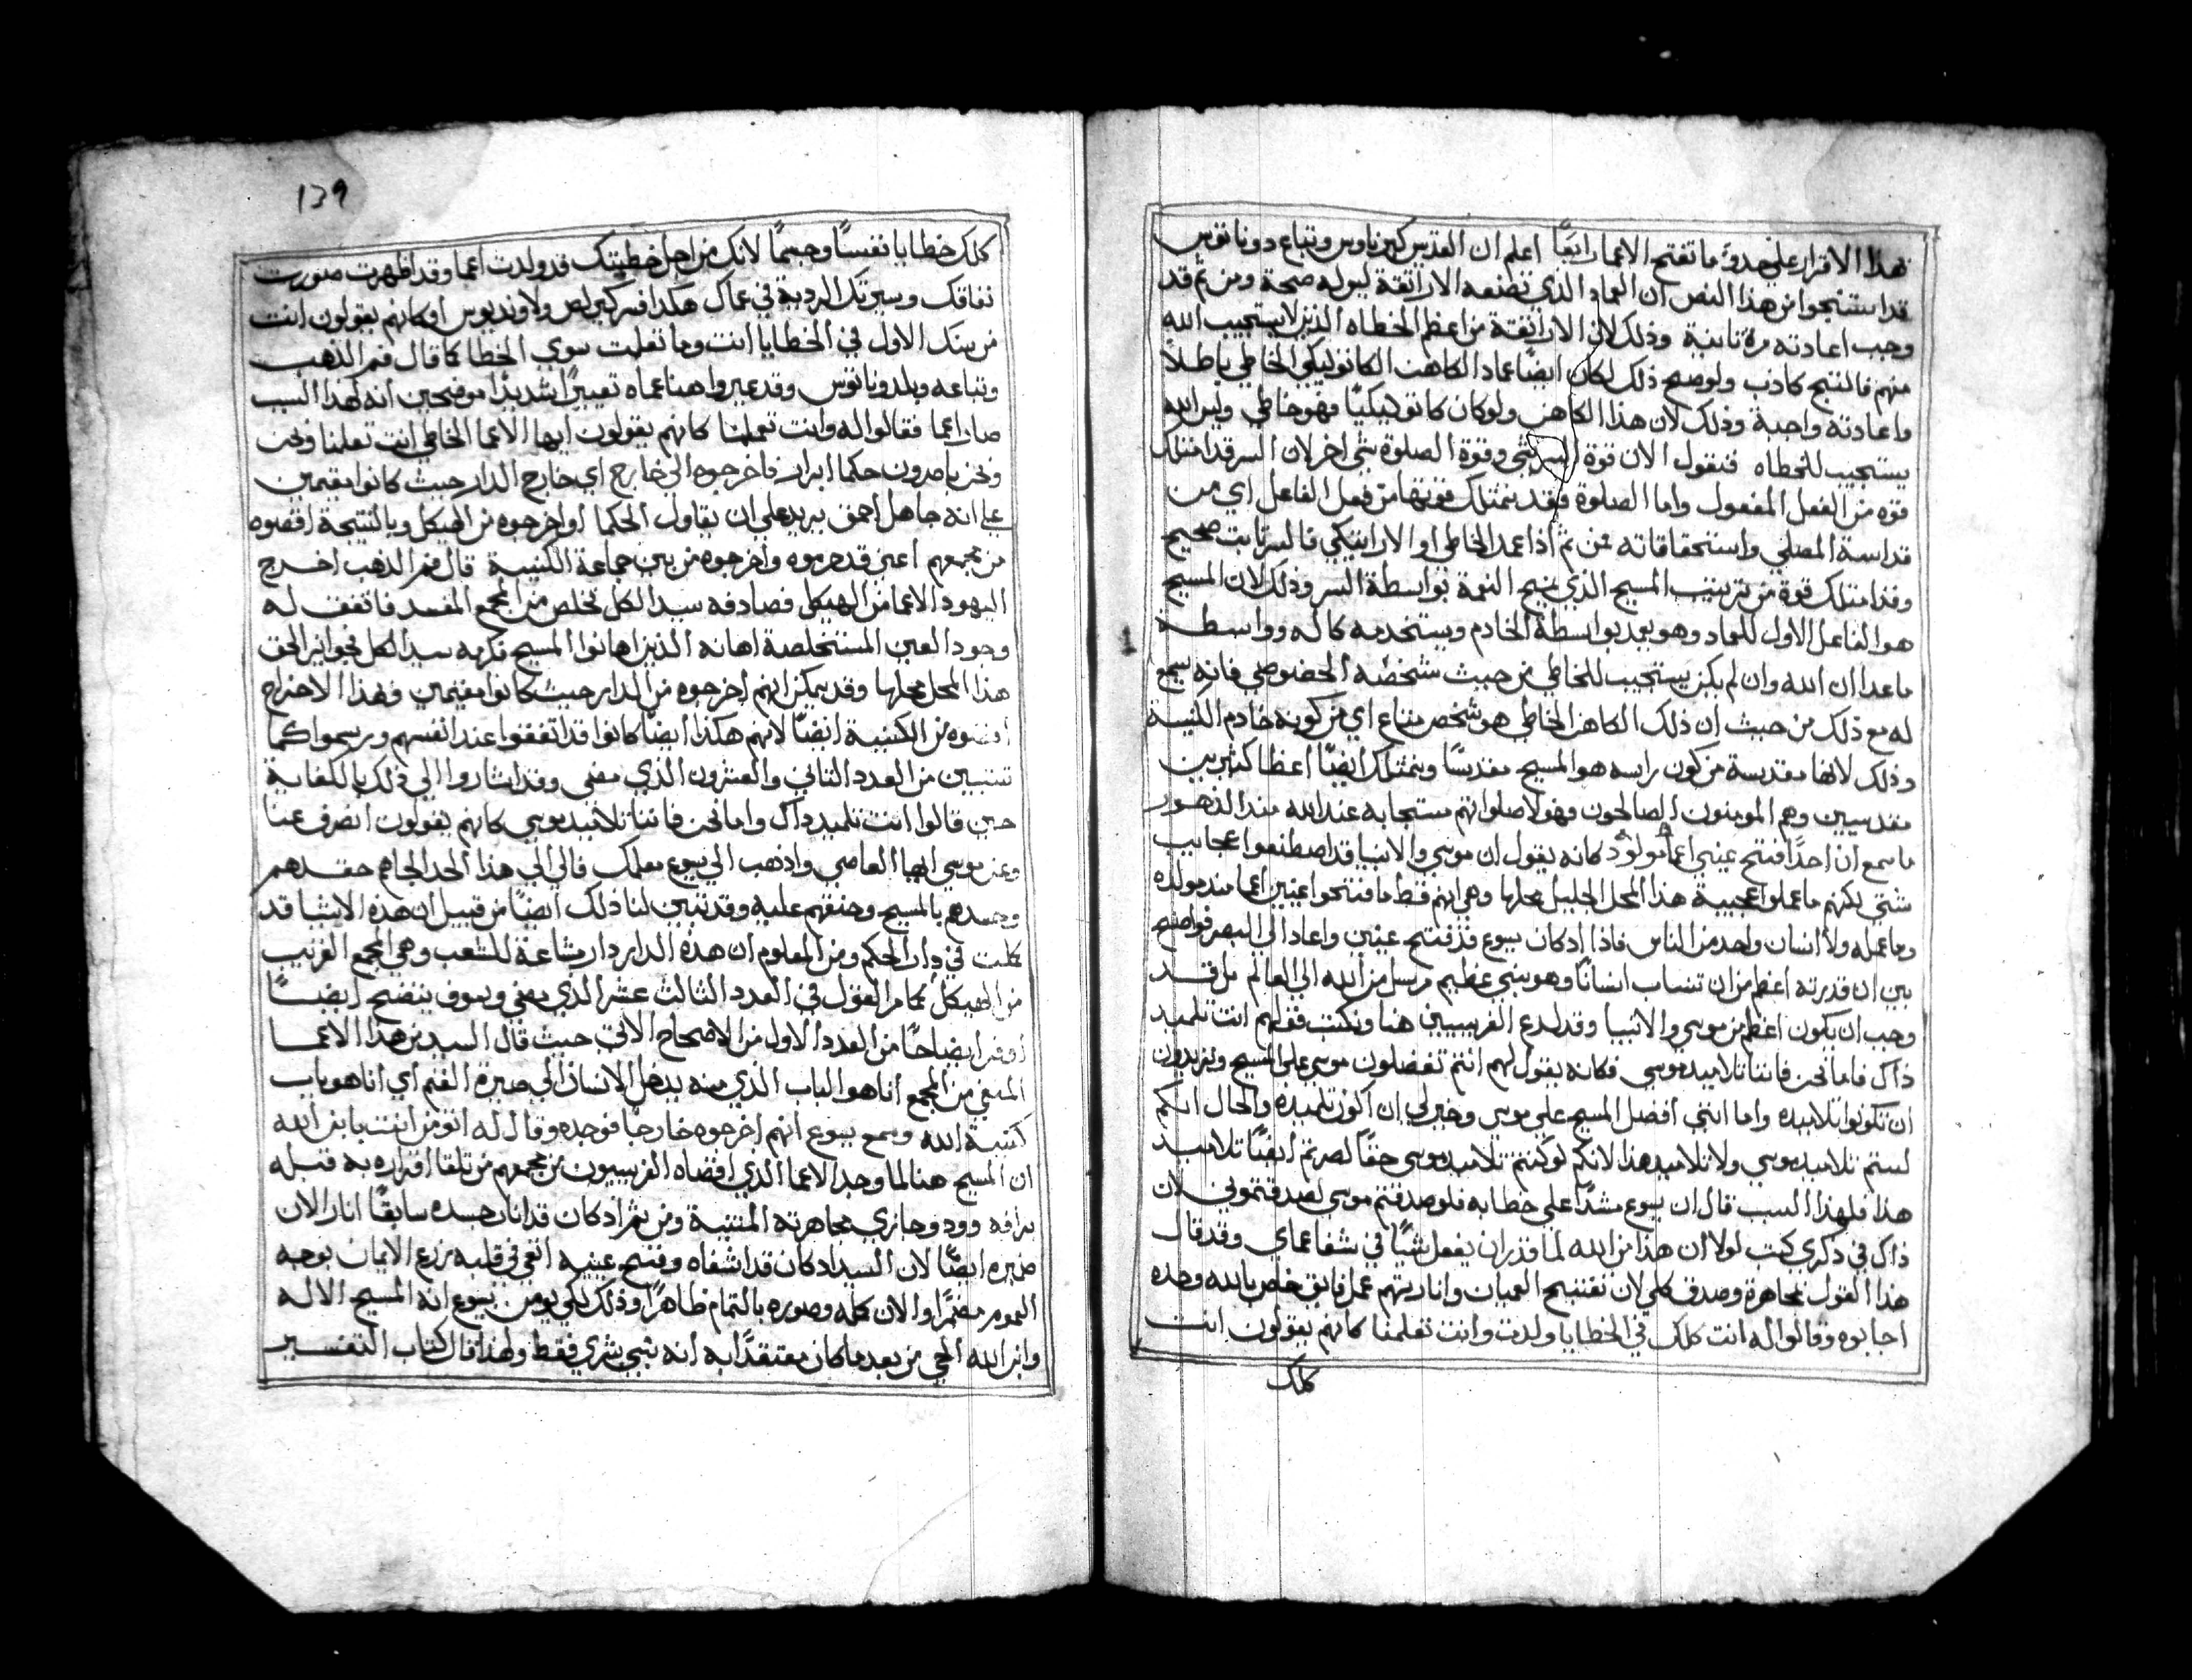 هذا الاقرار على حدوٰ ما تفتح الاعما رايقًا اعلم ان القديس كبريانوس وتباع دوناتوس
قد استنتجوا من هذا النص ان العماد الذي تصنعه الاراتقة ليس له صحة ومن ثم قد
وجب اعادته مرة ثانية وذلك لان الاراتقة من اعظم الخطاه الذين لا يستجيب الله
منهم فالنتج كاذب ولو صح ذلك لكان ايضًا عماد الكاهن الكاتوليكي الخاطي باطلاً
واعادته واجبة وذلك لان هذا الكاهن ولو كان كاتوليكيًا فهو خاطي وليس الله
يستجيب للخطاه فنقول الان قوة السر شي وقوة الصلوة شي اخر لان السر قد امتلك
قوه من الفعل المفعول واما الصلوة فقد تمتلك قوتها من فعل الفاعل اي من
قداسة المصلي واستحقاقاته فمن ثم اذا عمد الخاطي او الاراتيكي فالسر ثابت صحيح
وقد امتلك قوة من ترتيب المسيح الذي يمنح النعمة بواسطة السر وذلك لان المسيح
هو الفاعل الاول للعماد وهو يعمد بواسطة الخادم ويستخدمه كاله وواسطة
ما عدا ان الله وان لم يكن يستجيب للخاطي من حيث شخصه الخصوصي فانه يسمع
له مع ذلك من حيث ان ذلك الكاهن الخاطي هو شخص متاع اي من كونه خادم الكنيسة
وذلك لانها مقدسة من كون راسه هو المسيح مقدسًا ويمتلك ايضًا اعظا كثيرين
مقدسين وهم المومنون الصالحون فهولا صلواتهم مستجابه عند الله منذ الدهور
ما سمع ان احدًا فتح عيني اعما مولود كانه يقول ان موسي والانبيا قد اصطنعوا عجايب
شتي لكنهم ما عملوا عجيبة هذا المحل الجليل محلها وهي انهم قط ما فتحوا عينين اعما منذ مولده
وما عمله ولا انسان واحد من الناس فاذا اد كان يسوع قد فتح عينين واعاد الى البصر فواضح
بين ان قدرته اعظم من ان تنساب انسانًا وهو نبي عظيم مرسل من الله الي العالم بل قد
وجب ان يكون اعظم من موسي والانبيا وقد لدع الفريسيين هنا ونكت فقالهم انت تلميد
ذاك فاما نحن فاننا تلاميد موسي فكانه يقول لهم انتم تفضلون موسي على المسيح وتريدون
ان تكونوا تلاميده واما انني افضل المسيح علي موسى وخير لي ان اكون تلميده والحال انكم
لستم تلاميد موسي ولا تلاميد هذا لانكم لو كنتم تلاميد موسي حقًا لصرتم ايضًا تلاميد
هذا فلهذا السبب قال ان يسوع مشدًا على خطابه فلو صدقتم موسي لصدقتموني لان
ذاك في ذكري كتب لولا ان هذا من الله لما قدر ان يفعل شيًا في شفا عماي وقد قال
هذا القول بمجاهرة وصدق كلي لان تفتيح العميان وانارتهم عمل فايق خاص بالله وحده
اجابوه وقالوا له انت كلك في الخطايا ولدت وانت تعلمنا كانهم يقولون انت
كلك
139
كلك خطايا نفسًا وجسمًا لانك من اجل خطيتك قد ولدت اعما وقد اظهرت صورت
نفاقك وسيرتك الردية في عماك هكذا فسر كيرلص ولاونديوس او كانهم يقولون انت
من سنك الاول في الخطايا انت وما تعلمت سوي الخطا كما قال فم الذهب
وتباعه ويلدوناتوس وقد عيروا هنا عماه تعييرًا شديدًا موضحين انه لهذا السبب
صار اعما فقالوا له وانت تعلمنا كانهم يقولون ايها الاعما الخاطي انت تعلمنا ونحن
ونحن باصرون حكما ابرار فاخرجوه الي خارج اي خارج الدار حيث كانوا مقيمين
علي انه جاهل احمق يريد علي ان يقاول الحكما او اخرجوه من الهيكل وبالنتيجة اقصوه
من مجمعهم اعني قد حرموه واخرجوه من بين جماعة الكنيسة قال فم الذهب اخرج
اليهود الاعما من الهيكل فصادفه سيد الكل تخلص من المجمع المفسد فاتفق له
وجود العين المستخلصة اهانه الذين اهانوا المسيح فكرمه سيد الكل فجوايز الحق
هذا المحل محلها وقد يمكن انهم اخرجوه من الدار حيث كانوا مقيمين فهذا الاخراج
اقصوه من الكنيسة ايضًا لانهم هكذا ايضًا كانوا قد اتفقوا عند انفسهم ورسموا كما
تبين من العدد الثاني والعشرون الذي مضي وقد اشاروا الي ذلك بالكفاية
حين قالوا انت تلميد ذاك واما نحن فاننا تلاميد موسي كانهم يقولون انصرف عنا
وعن موسي ايها العاصي واذهب الي يسوع معلمك فالي الي هذا الحد الجاهم حقدهم
وحسدهم بالمسيح وحنقهم عليه وقد تبين لنا ذلك ايضًا من قبيل ان هذه الاشيا قد
كملت في دار الحكم ومن المعلوم ان هذه الدار دار مشاعة للشعب وهي المجمع القريب
من الهيكل كما مر القول في العدد الثالث عشر الذي مضي وسوف يتضح ايضًا
اوفر ايضاحًا من العدد الاول من الاصحاح الاتي حيث قال السيد من هذا الاعما
المنفي من المجمع انا هو الباب الذي منه يدخل الانسان الي صيرة الغنم اي انا هو باب
كنيسة الله وسمع يسوع انهم اخرجوه خارجًا فوجده وقال له اتومن انت بابن الله
ان المسيح هنا لما وجد الاعما الذي اقصاه الفريسيون من مجمعهم من تلقا اقراره به قبله
برافه وود وجازي مجاهرته المتينة ومن ثم اد كان قد انار جسده سابقًا انار الان
ضميره ايضًا لان السيد اد كان قد اشفاه وفتح عينيه القي في قلبه زرع الايمان بوجه
العموم مضمرًا والان كمله وصوره بالتمام ظاهرًا وذلك لكي يومن بيسوع انه المسيح الاله
وابن الله الحي من بعد ما كان معتقدًا به انه نبي بشري فقط ولهذا قال كتاب التفسير